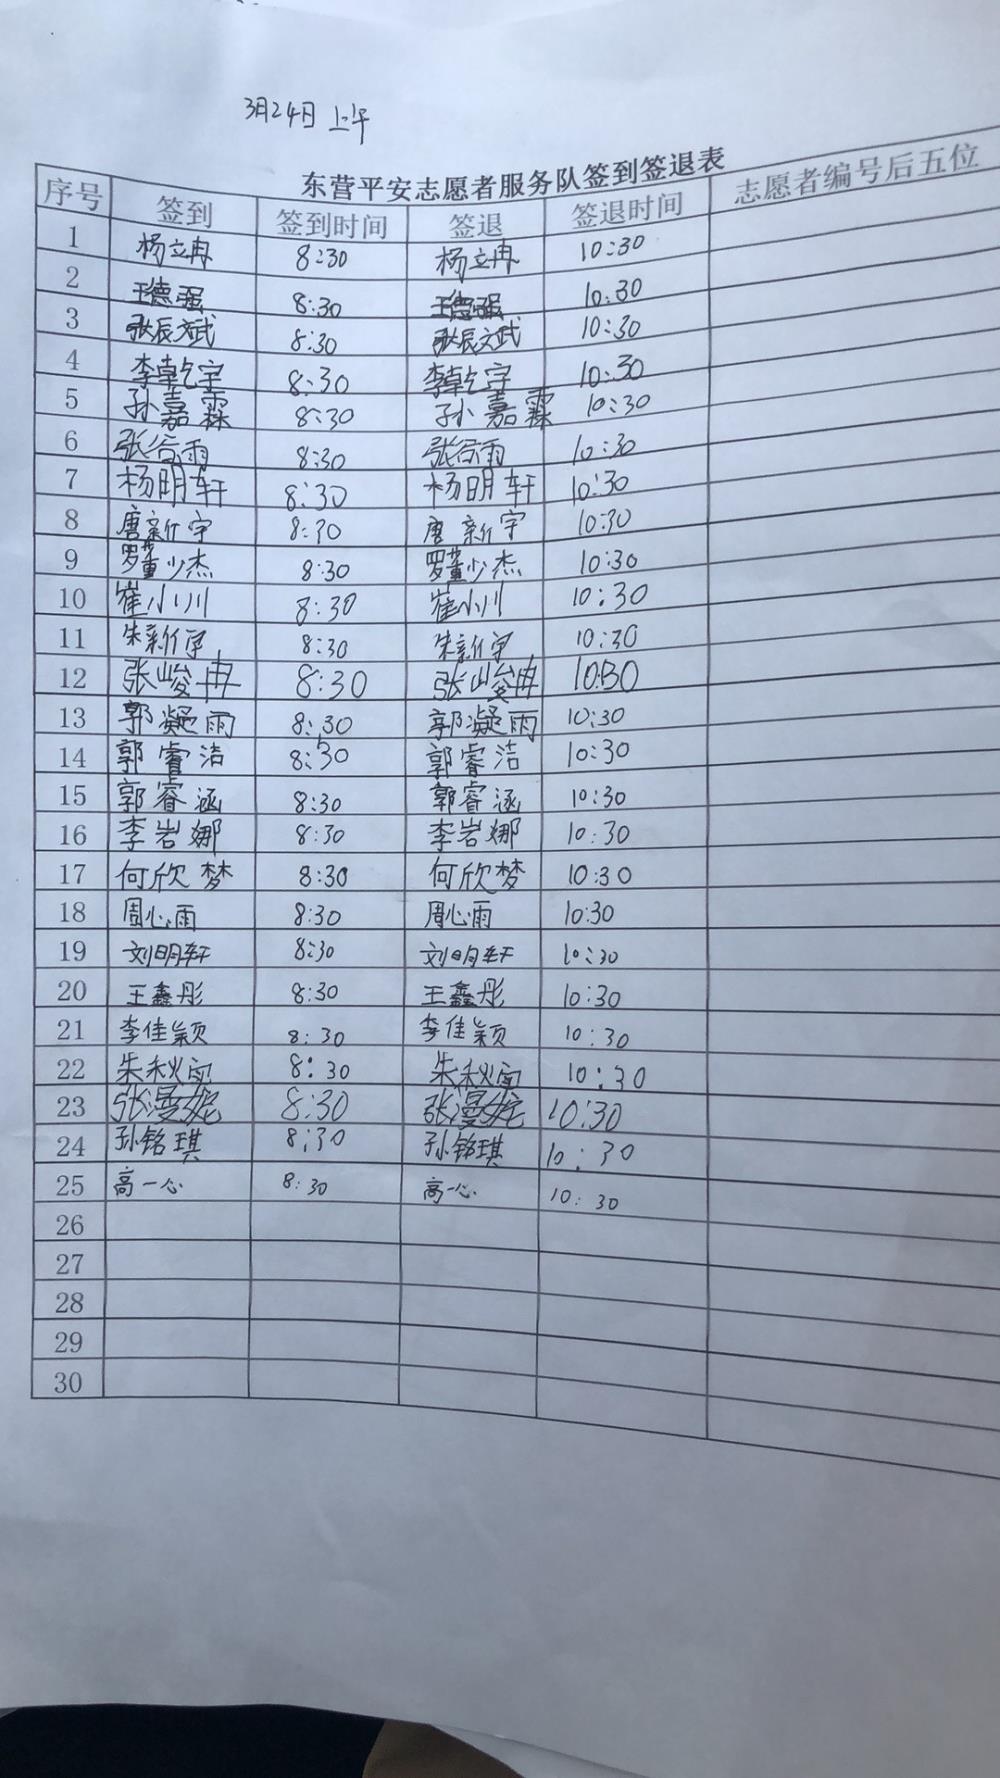 3月24日 上午
东营平安志愿者服务队签到签退表
序号 签到 签到时间 签退 签退时间 志愿者编号后五位
1 杨立冉 8:30 杨立冉 10:30
2 王德强 8:30 王德强 10:30
3 张辰文武 8:30 张辰文武 10:30
4 李乾宇 8:30 李乾宇 10:30
5 孙嘉霖 8:30 孙嘉霖 10:30
6 张谷雨 8:30 张谷雨 10:30
7 杨明轩 8:30 杨明轩 10:30
8 唐新宇 8:30 唐新宇 10:30
9 罗董少杰 8:30 罗董少杰 10:30
10 崔小川 8:30 崔小川 10:30
11 朱新宇 8:30 朱新宇 10:30
12 张峻冉 8:30 张峻冉 10:30
13 郭凝雨 8:30 郭凝雨 10:30
14 郭睿洁 8:30 郭睿洁 10:30
15 郭睿涵 8:30 郭睿涵 10:30
16 李岩娜 8:30 李岩娜 10:30
17 何欣梦 8:30 何欣梦 10:30
18 周心雨 8:30 周心雨 10:30
19 刘明轩 8:30 刘明轩 10:30
20 王鑫彤 8:30 王鑫彤 10:30
21 李佳颖 8:30 李佳颖 10:30
22 朱秋实 8:30 朱秋实 10:30
23 张漫妮 8:30 张漫妮 10:30
24 孙铭琪 8:30 孙铭琪 10:30
25 高一心 8:30 高一心 10:30
26
27
28
29
30